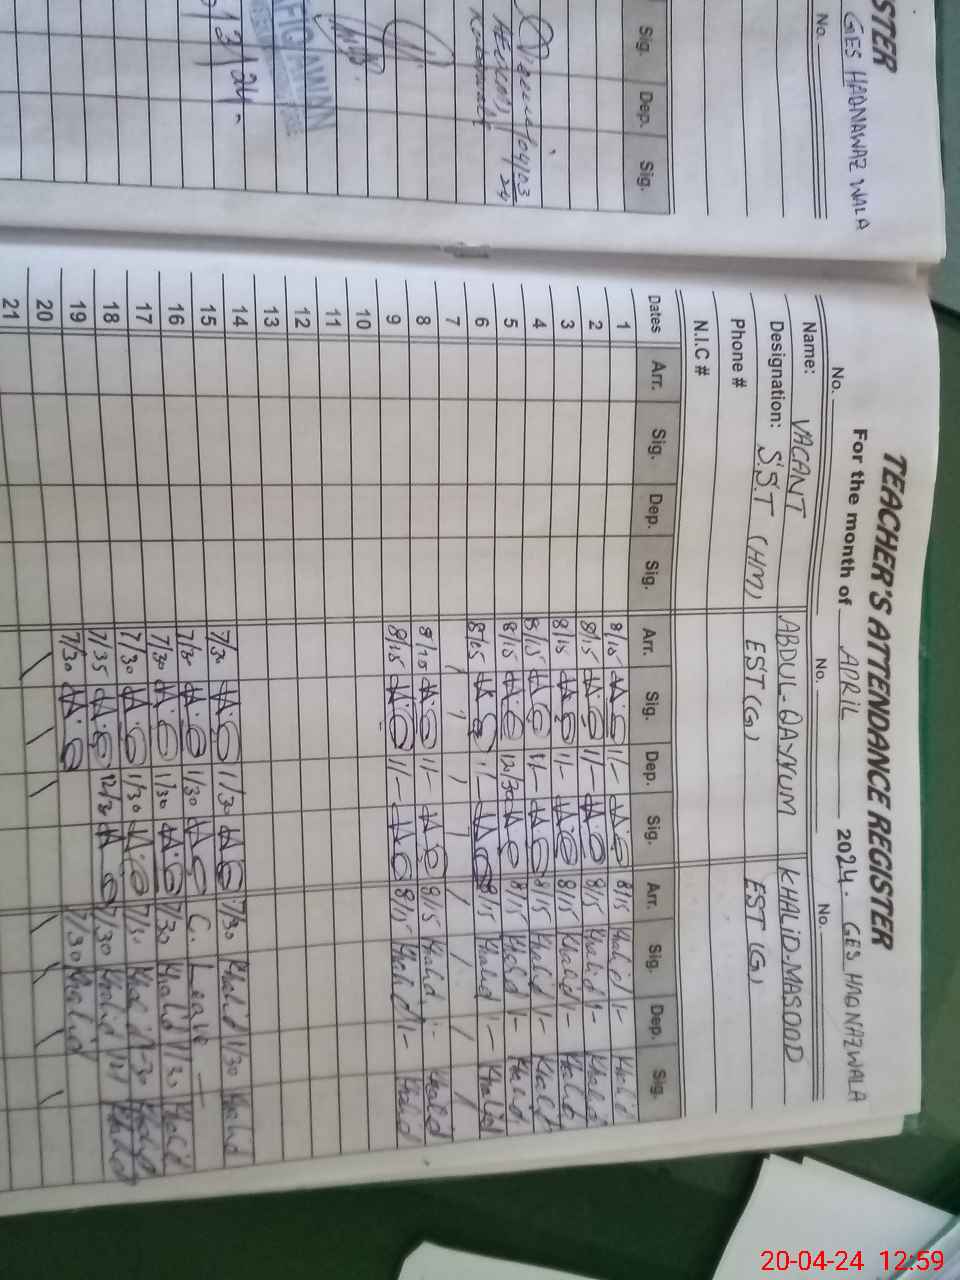 STER
GES HAQNAWAZ WALA
No.
Sig. Dep. Sig.
04/03
24
13/24.
TEACHER'S ATTENDANCE REGISTER
For the month of APRIL 2024. GES HAQNAZWALA
No. No. No.
Name: VACANT ABDUL-QAYYUM KHALID-MASOOD
Designation: S.S.T (HM) EST(G) EST(G)
Phone #
N.I.C #
Dates Arr. Sig. Dep. Sig. Arr. Sig. Dep. Sig. Arr. Sig. Dep. Sig.
1 8/15 1/- 8/15 Khalid 1/- Khalid
2 8/15 1/- 8/15 Khalid 1/- Khalid
3 8/15 1/- 8/15 Khalid 1/- Khalid
4 8/15 1/- 8/15 Khalid 1/- Khalid
5 8/15 12/30 8/15 Khalid 1/- Khalid
6 8/15 1/- 8/15 Khalid 1/- Khalid
7
8 8/15 1/- 8/15 Khalid 1/- Khalid
9 8/15 1/- 8/15 Khalid 1/- Khalid
10
11
12
13
14 7/30 1/30 7/30 Khalid 1/30 Khalid
15 7/30 1/30 C. Leave
16 7/30 1/30 7/30 Khalid 1/30 Khalid
17 7/30 1/30 7/30 Khalid 1-30 Khalid
18 7/35 12/30 7/30 Khalid Khalid
19 7/30 7/30 Khalid
20
21
20-04-24 12:59